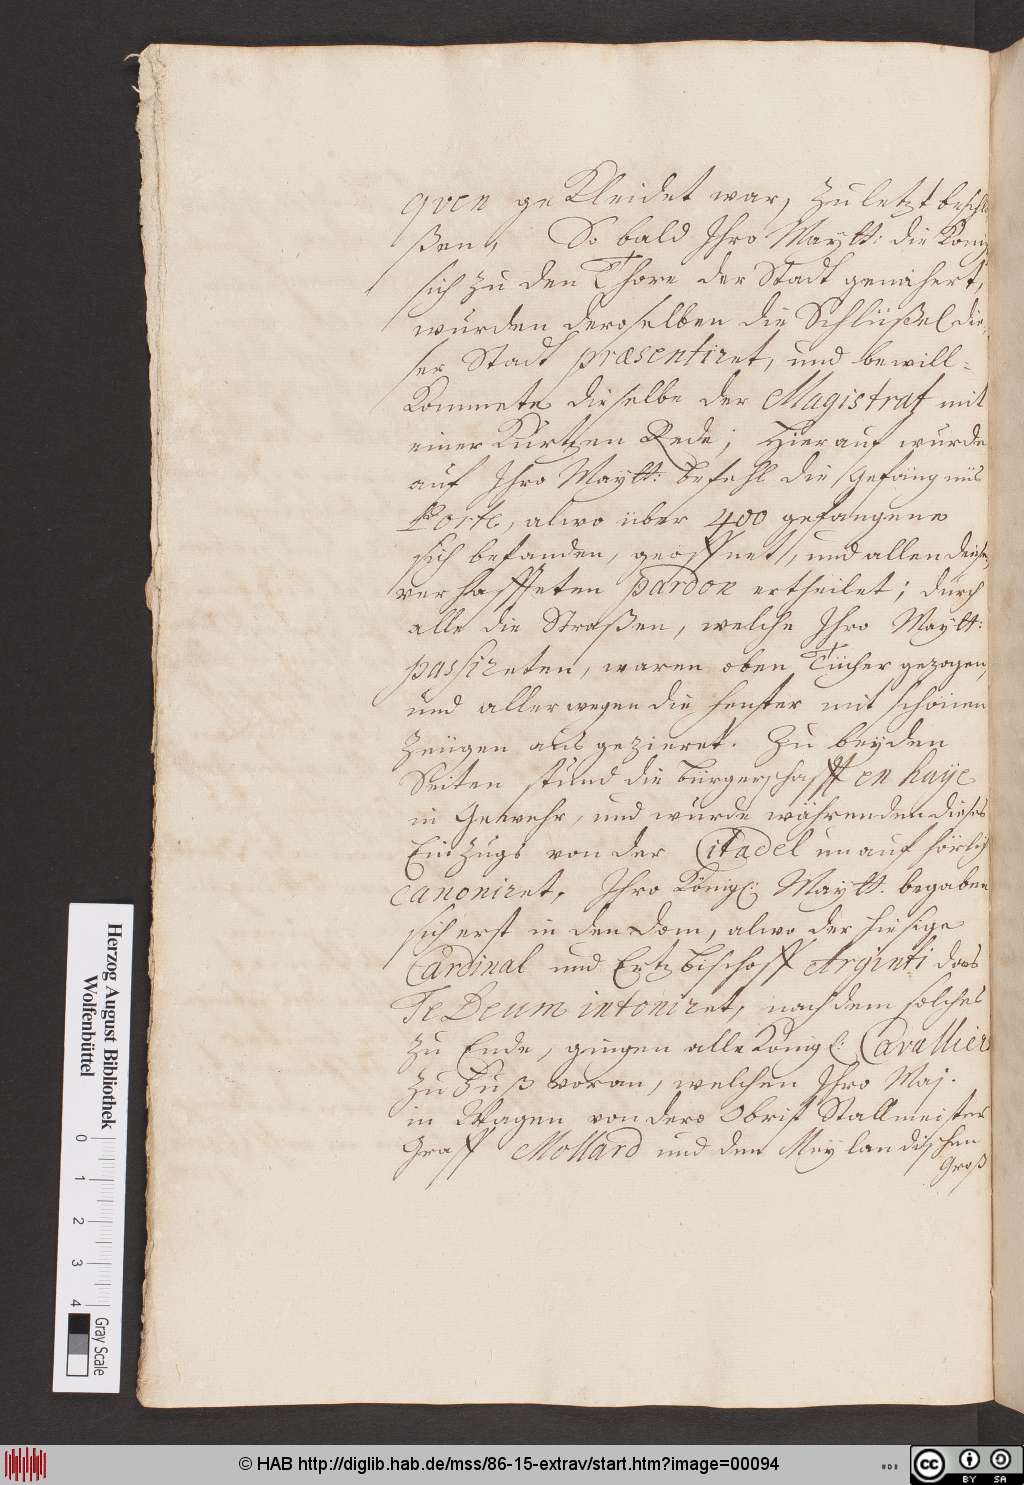 qven geKleidet war, Zuletzt beschlo
ßen, So bald Ihro Maytt: die König
sich zu den Thore der Stadt genähert,
wurden deroselben die Schlüßel die-
ser Stadt præsentiret, und bewill-
Kommete dieselbe der Magistrat mit
einer Kurtzen Rede; Hierauf wurde
auf Ihro Maytt: befehl die Gefängnüs
Porte, alwo über 400 gefangene
sich befanden, geöffnet, und allen diesen
verhaffteten pardon ertheilet; durch
alle die Straßen, welche Ihro Maytt:
passireten, waren oben Tücher gezogen,
und allerwegen die fenster mit schönen
Zeügen ausgezieret. Zu beyden
Seiten stund die bürgerschafft en haye
in Gewehr, und wurde währenden dieses
EinZugs von der Citadel unaufhörlich
canoniret, Ihro Königl: Maytt. begaben
sich erst in den Dom, alwo der hiesige
Cardinal und ErtzBischoff Arginti das
Te Deum intoniret, nachdem solches
zu Ende, gingen alle Königl: Cavallier
zu Fuß voran, welchen Ihro Maj.
in Wagen von dero Obrist Stallmeister
Graff Mollard und den Meylandischen
Groß
Herzog August Bibliothek
Wolfenbüttel
0 1 2 3 4
Gray Scale
© HAB http://diglib.hab.de/mss/86-15-extrav/start.htm?image=00094
cc BY SA